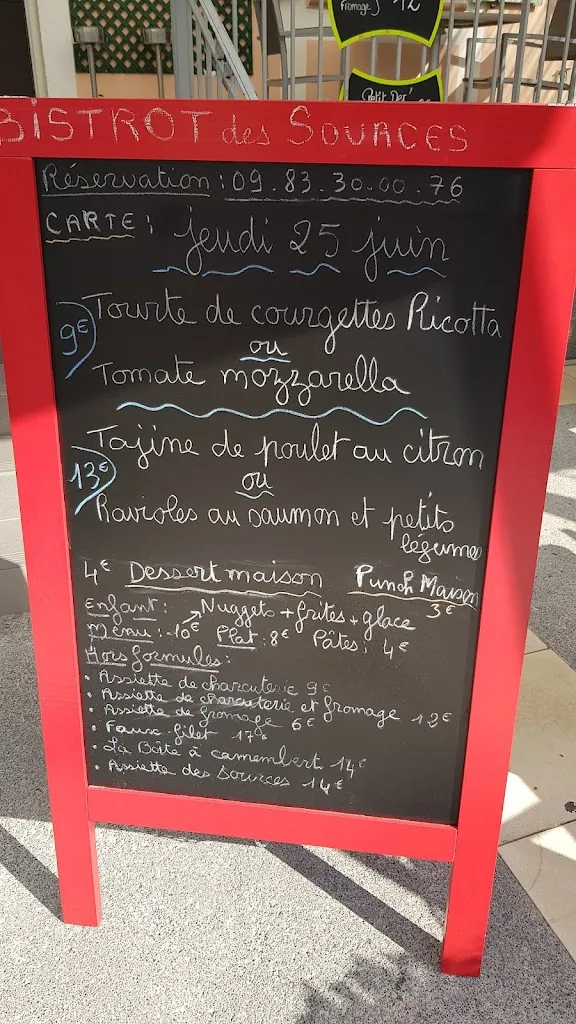 fromage) 12
Petit Dej'
BISTROT des SOURCES
Réservation : 09.83.30.00.76
CARTE : jeudi 25 juin
9€ Tourte de courgettes Ricotta
ou
Tomate mozzarella
13€ Tajine de poulet au citron
ou
Ravioles au saumon et petits
légumes
4€ Dessert maison Punch Maison
3€
Enfant : Nuggets + frites + glace
Menu : 10€ Plat : 8€ Pâtes : 4€
Hors formules :
• Assiette de charcuterie 9€
• Assiette de charcuterie et fromage 12€
• Assiette de fromage 6€
• Faux-filet 17€
• La Boîte à camembert 14€
• Assiette des sources 14€